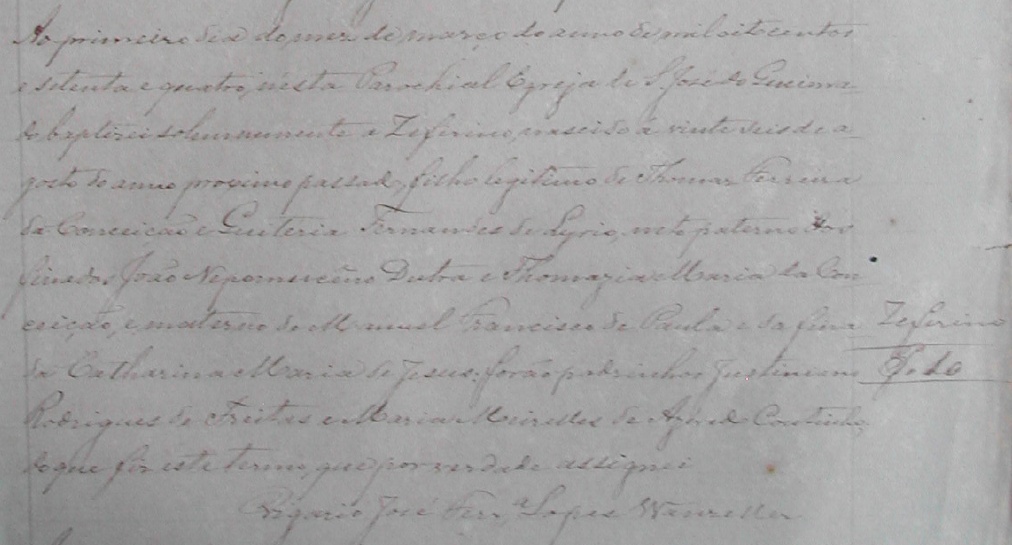 Ao primeiro dia do mez de março do anno de mil oitocentos
e setenta e quatro, nesta Parochial Egreja de S. José do Queima
do baptizei solemnemente a Zeferino, nascido a vinte seis de a
gosto do anno proximo passado, filho legitimo de Thomaz Ferreira
da Conceição e Quiteria Fernandes de Lyrio, neto paterno dos
finados João Nepomuceno Dutra e Thomazia Maria da Con
ceição, e materno de Manuel Francisco de Paula e da fina
da Catharina Maria de Jesus. Forão padrinhos Justiniano
Rodrigues de Freitas e Maria Meirelles de Azeredo Coutinho,
do que fiz este termo, que por verdade assignei
Vigario José Ferr.ª Lopes
Zeferino